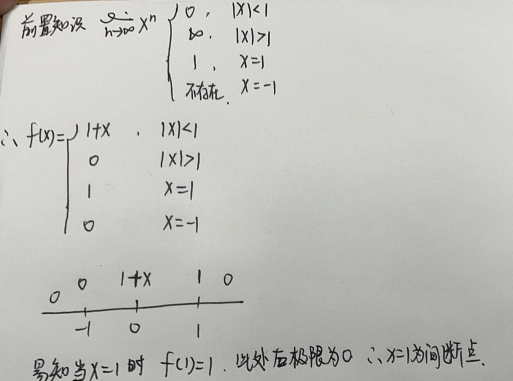 前置知识 lim n→∞ xⁿ { 0, |x|<1
∞, |x|>1
1, x=1
不存在. x=-1
∴ f(x)= { 1+x, |x|<1
0 |x|>1
1 x=1
0 x=-1
0 0 1+x 1 0
-1 0 1
易知当x=1时 f(1)=1. 此处右极限为0 ∴x=1为间断点.